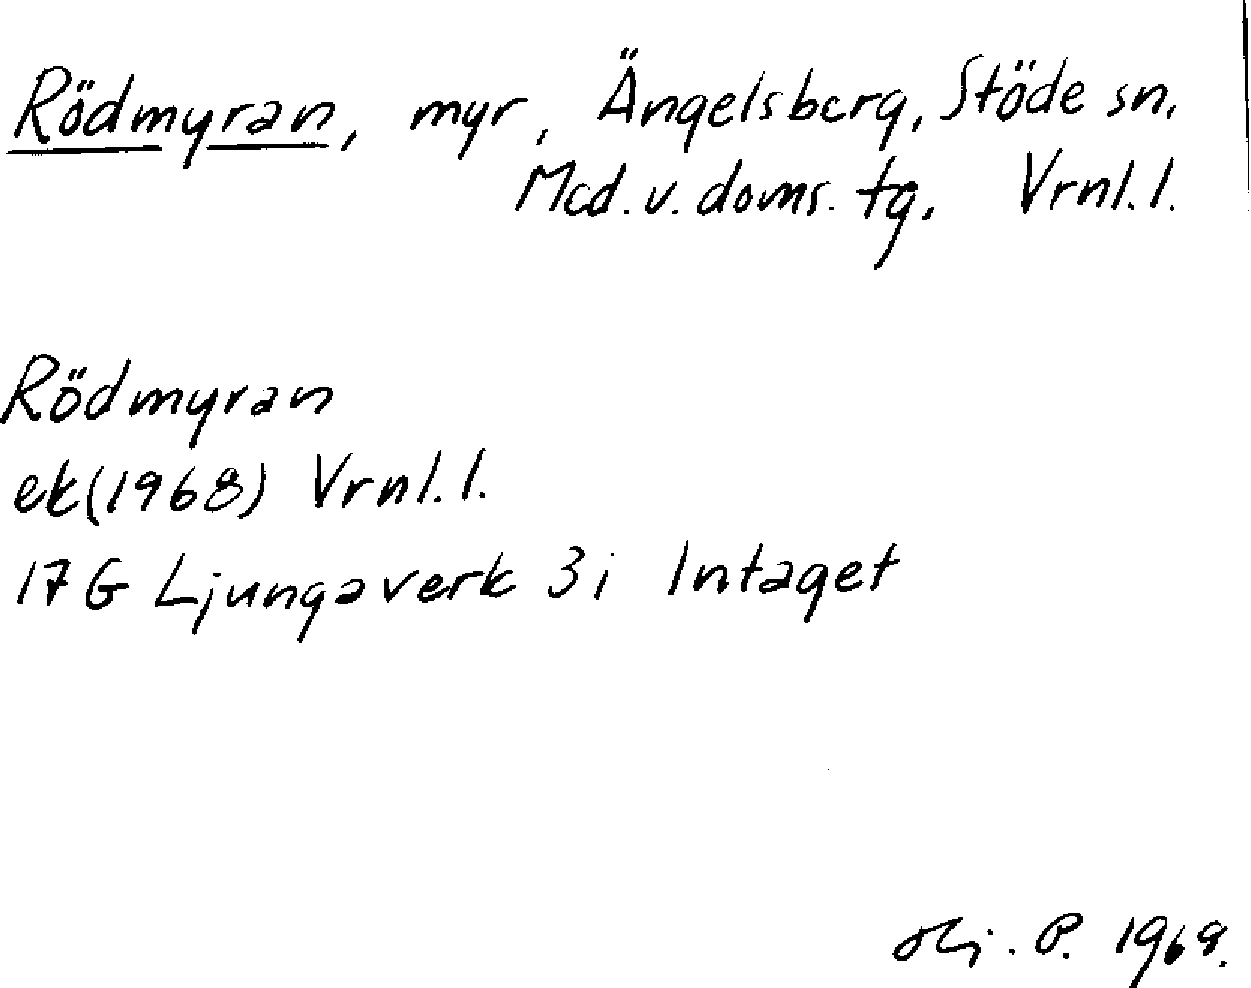 Rödmyran, myr, Ängelsberg, Stöde sn,
Med. v. doms. tg, Vrnl. l.
Rödmyran
ek(1968) Vrnl. l.
17 G Ljungaverk 3i Intaget
P. 1969.